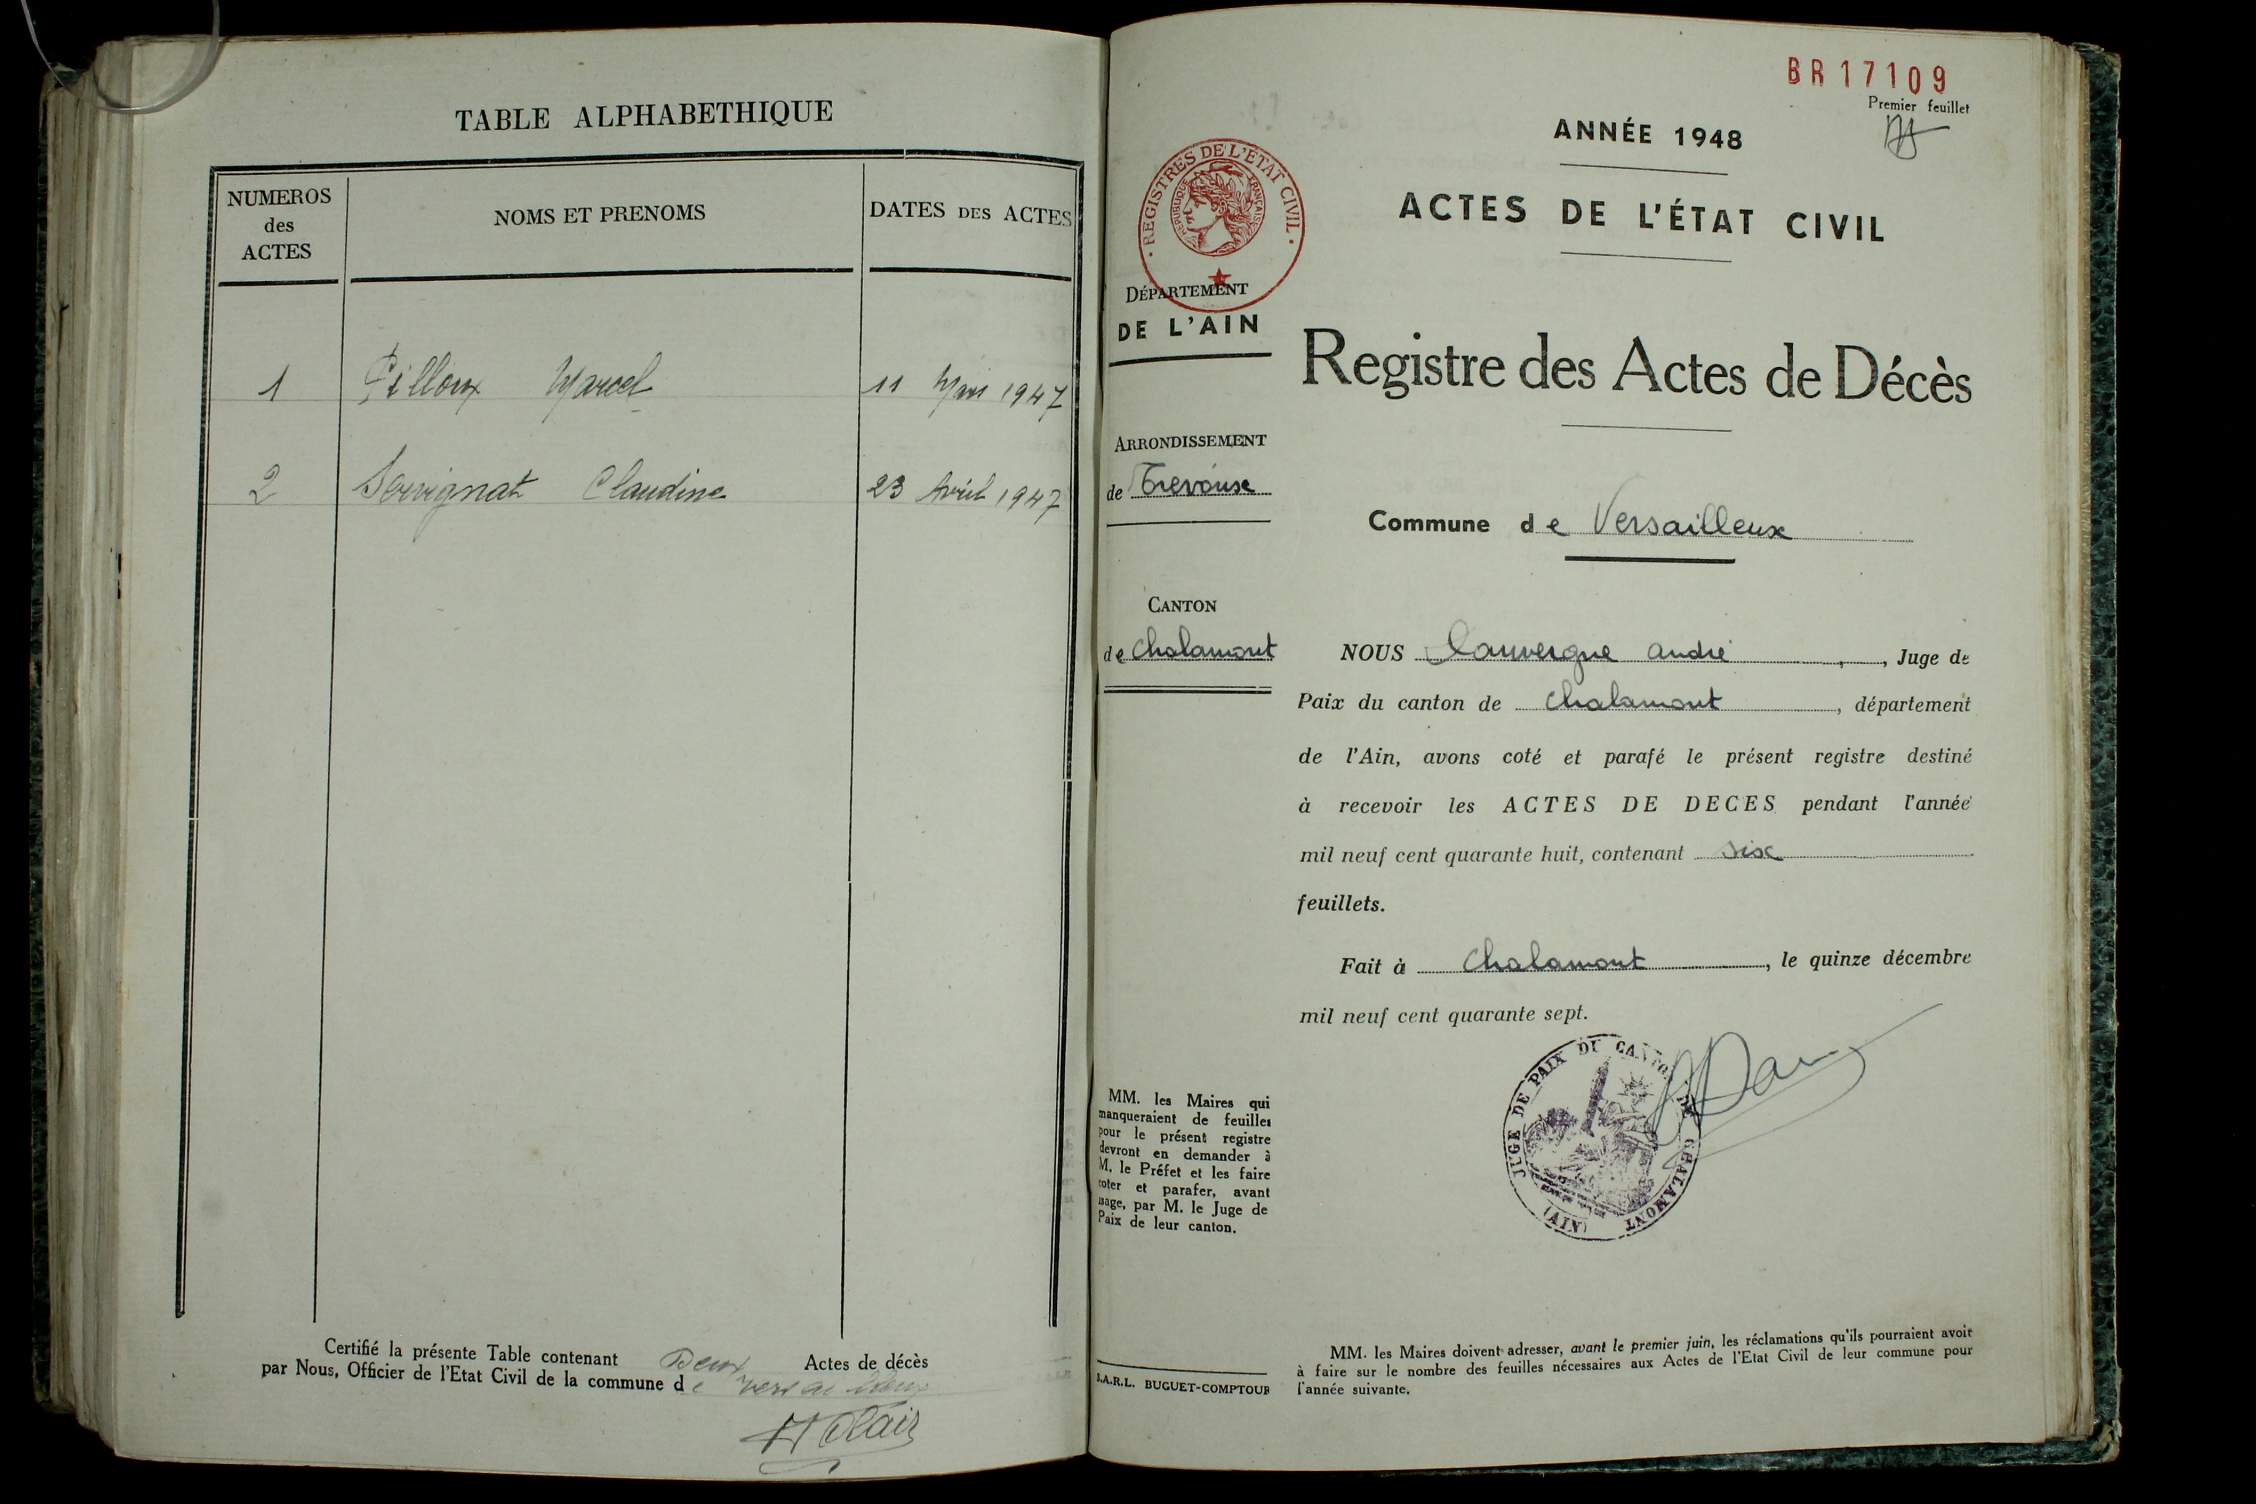 TABLE ALPHABETHIQUE
NUMEROS
des
ACTES
NOMS ET PRENOMS
DATES DES ACTES
1 Pilloux Marcel 11 Mars 1947
2 Servignat Claudine 23 Avril 1947
Certifié la présente Table contenant Deux Actes de décès
par Nous, Officier de l'Etat Civil de la commune de Versailleux
BR17109
Premier feuillet
ANNÉE 1948
ACTES DE L'ÉTAT CIVIL
· REGISTRES DE L'ÉTAT CIVIL ·
RÉPUBLIQUE FRANÇAISE
DÉPARTEMENT
DE L'AIN
Registre des Actes de Décès
ARRONDISSEMENT
de Trevoux
Commune de Versailleux
CANTON
de Chalamont
NOUS Dauvergne andré, Juge de
Paix du canton de Chalamont, département
de l'Ain, avons coté et parafé le présent registre destiné
à recevoir les ACTES DE DECES pendant l'année
mil neuf cent quarante huit, contenant six
feuillets.
Fait à Chalamont, le quinze décembre
mil neuf cent quarante sept.
JUGE DE PAIX DU CANTON DE CHALAMONT
(AIN)
MM. les Maires qui
manqueraient de feuilles
pour le présent registre
devront en demander à
M. le Préfet et les faire
coter et parafer, avant
usage, par M. le Juge de
Paix de leur canton.
S.A.R.L. BUGUET-COMPTOUR
MM. les Maires doivent adresser, avant le premier juin, les réclamations qu'ils pourraient avoir
à faire sur le nombre des feuilles nécessaires aux Actes de l'Etat Civil de leur commune pour
l'année suivante.